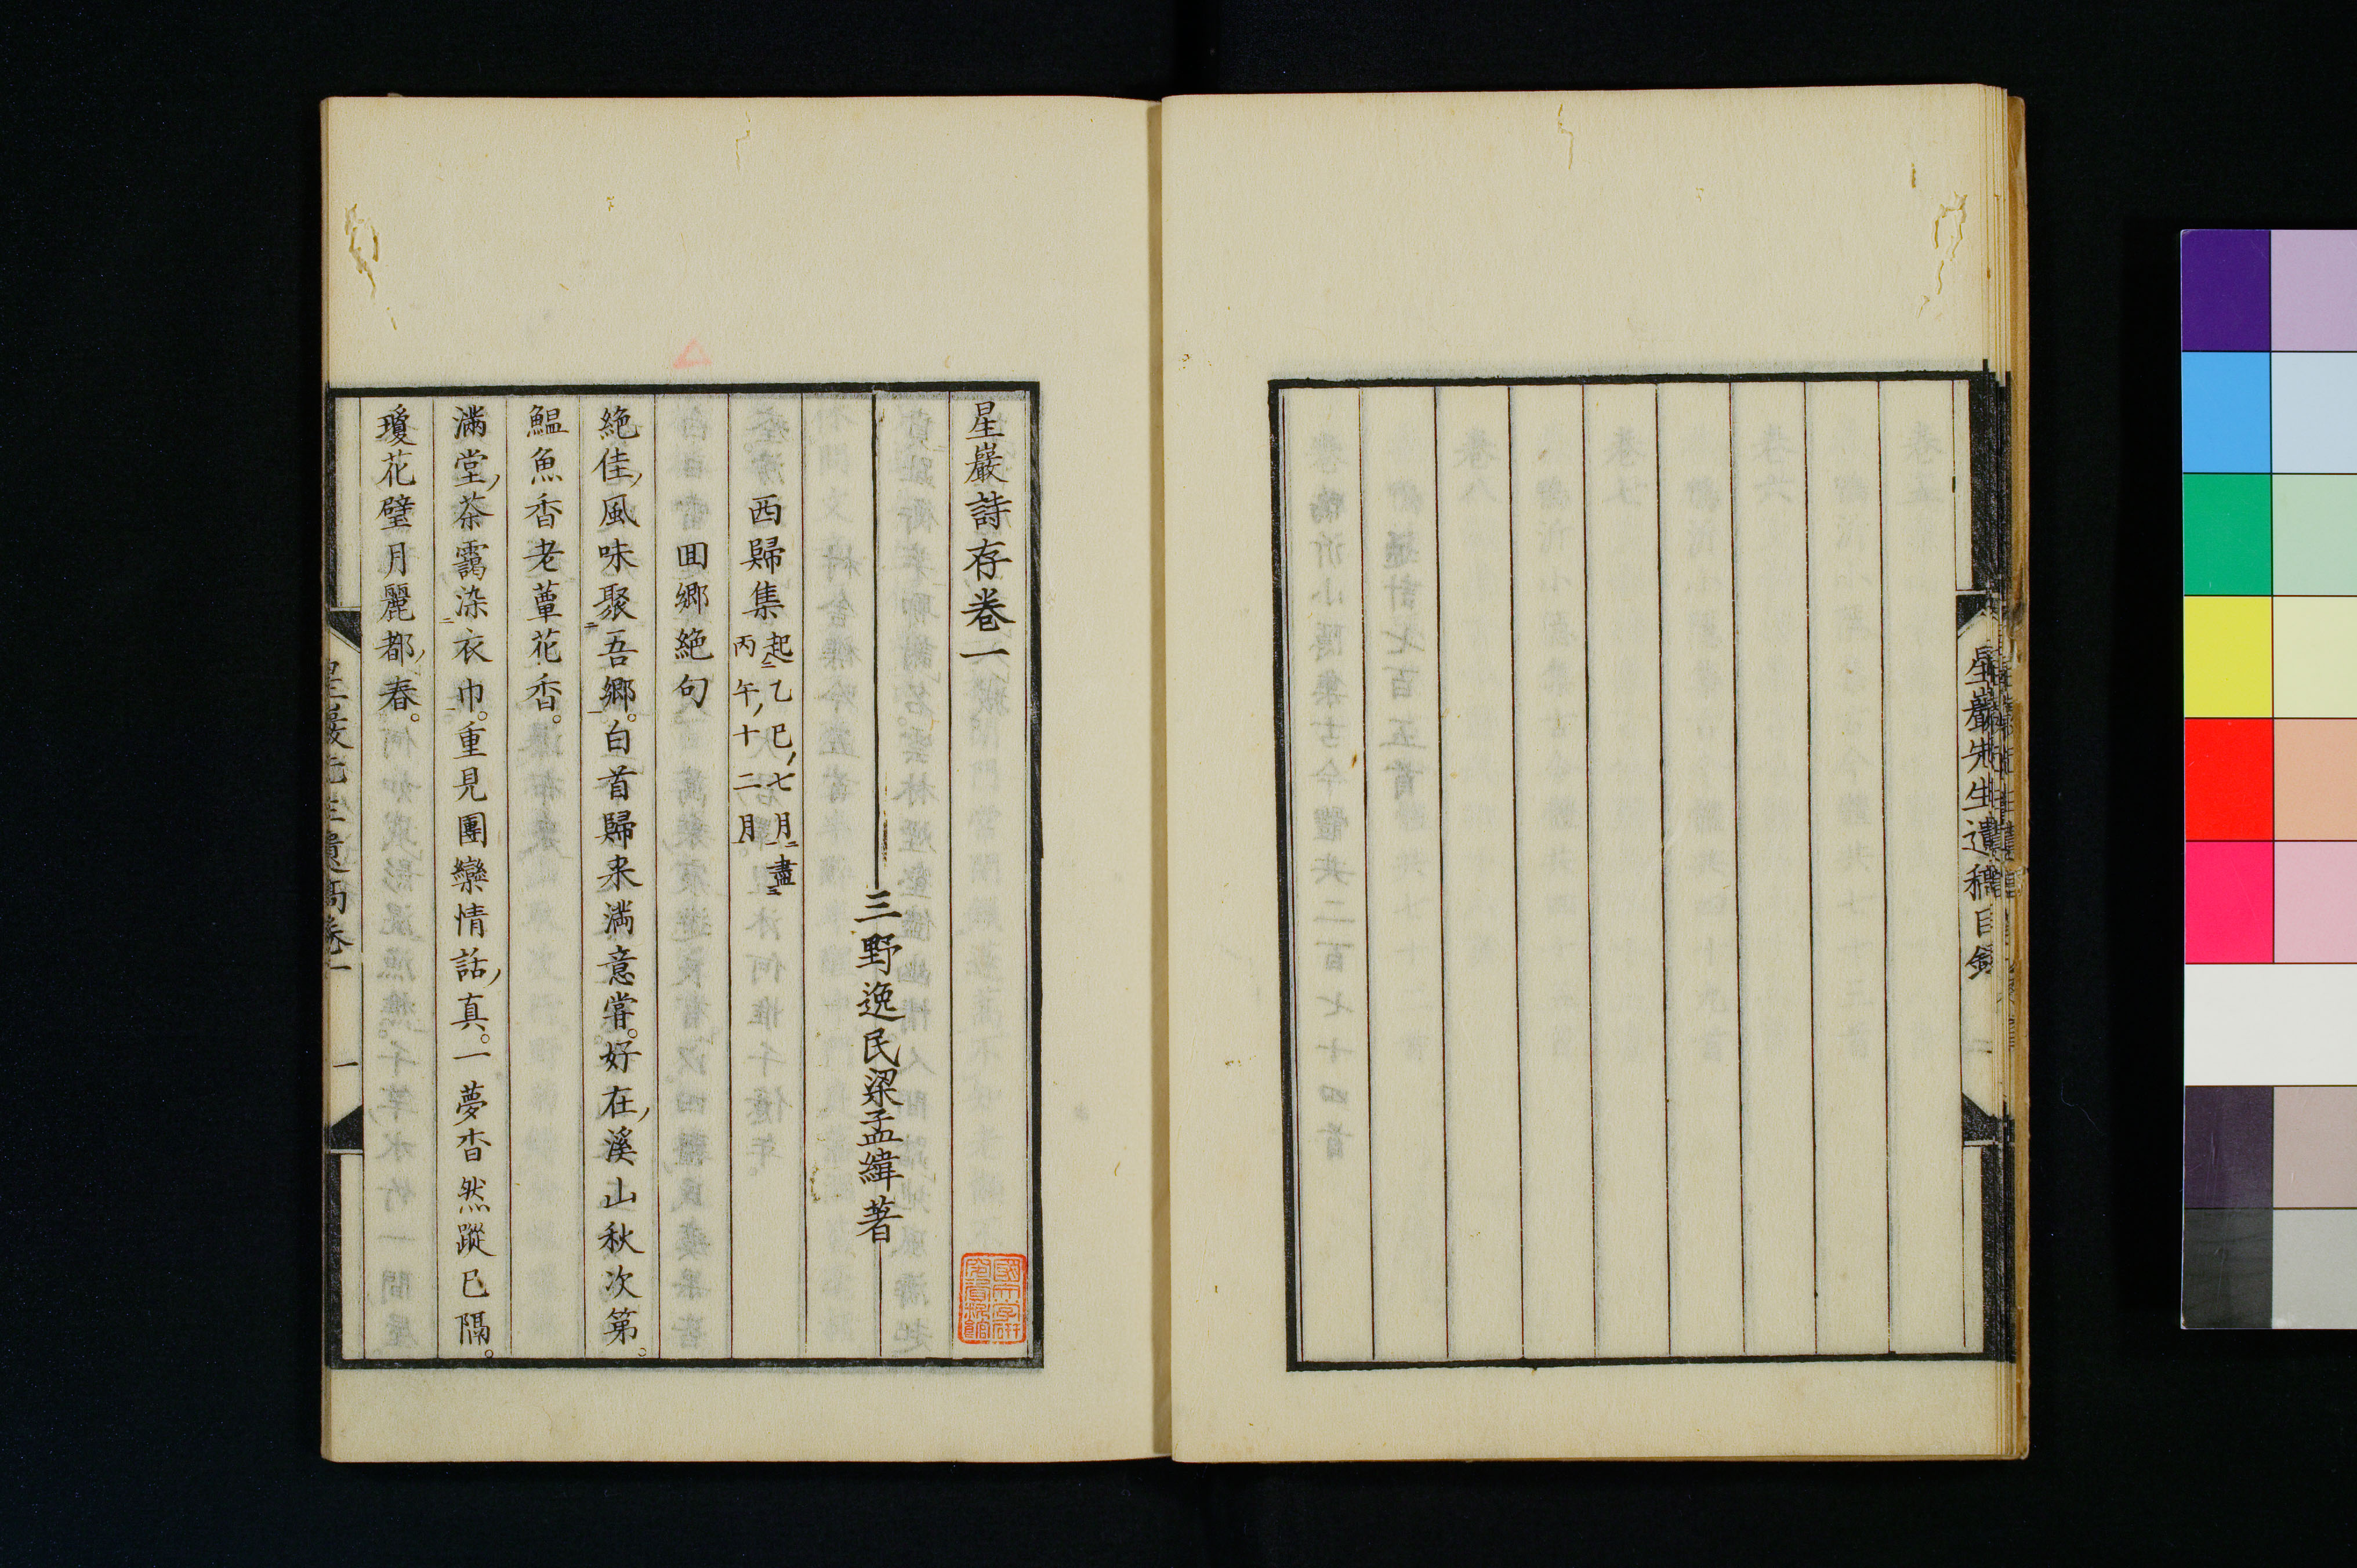 星巖先生遺稿目錄
二
星巖詩存卷一
三野逸民梁孟緯著
西歸集
起乙巳七月盡
丙午十二月
回郷絶句
絶佳風味聚吾郷。白首歸来満意嘗。好在溪山秋次第。
鰛魚香老蕈花香。
満堂茶靄染衣巾。重見團欒情話真。一夢杳然蹤已隔。
瓊花璧月麗都春。
星巖先生遺稿卷一
一